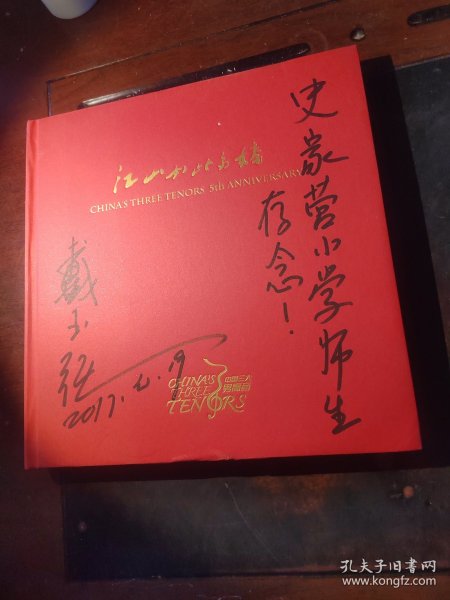 江山如此多娇
CHINA'S THREE TENORS 5th ANNIVERSARY
史家营小学师生
存念！
戴玉强
2017.6.19
CHINA'S
THREE
TENORS
中国三大
男高音
孔夫子旧书网
www.kongfz.com